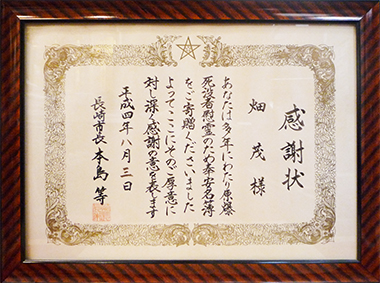 感謝状
畑茂様
あなたは多年にわたり原爆
死没者慰霊のため奉安名簿
をご寄贈くださいました
よってここにそのご厚意に
対し深く感謝の意を表します
平成四年八月三日
長崎市長 本島等